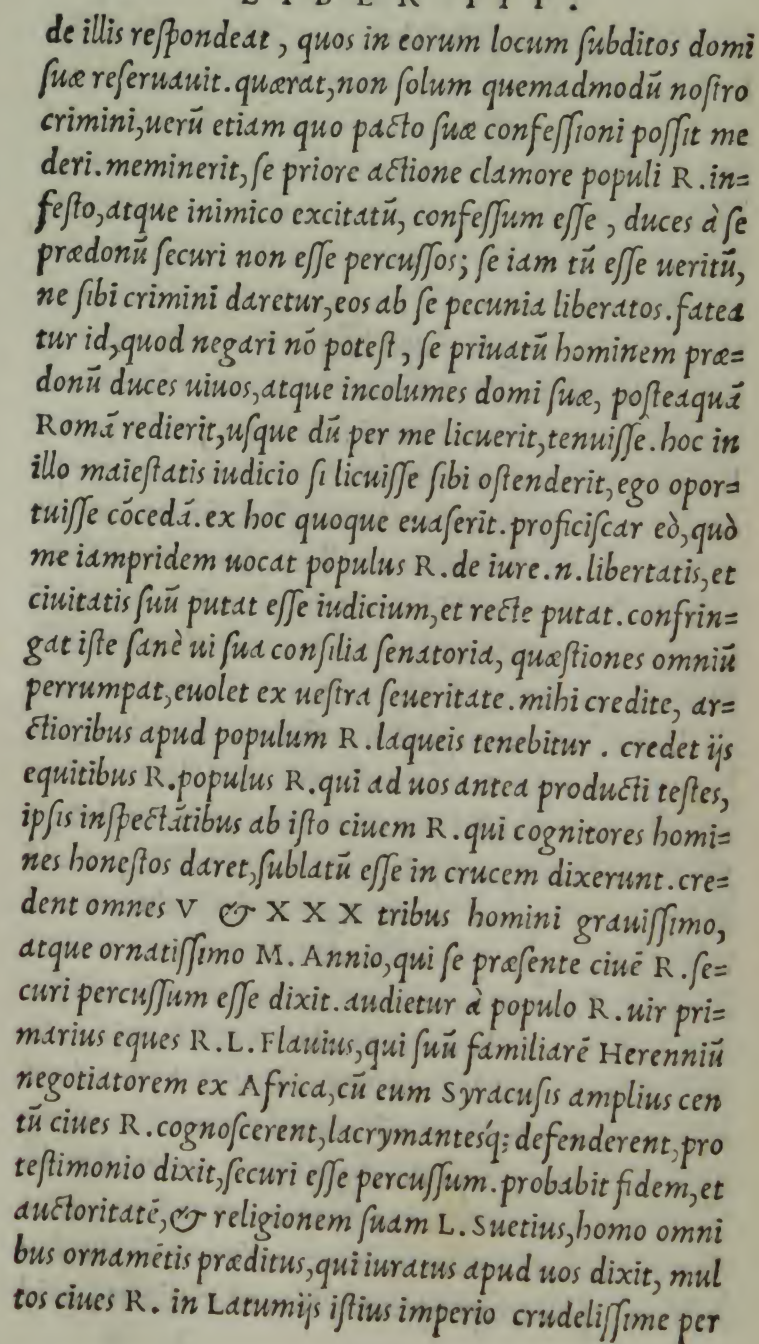 LIBER III.
de illis reſpondeat, quos in eorum locum ſubditos domi
ſuæ reſeruauit. quærat, non ſolum quemadmodũ noſtro
crimini, uerũ etiam quo pacto ſuæ confeſſioni poſſit me
deri. meminerit, ſe priore actione clamore populi R. in=
feſto, atque inimico excitatũ, confeſſum eſſe, duces à ſe
prædonũ ſecuri non eſſe percuſſos; ſe iam tũ eſſe ueritũ,
ne ſibi crimini daretur, eos ab ſe pecunia liberatos. fatea
tur id, quod negari nõ poteſt, ſe priuatũ hominem præ=
donũ duces uiuos, atque incolumes domi ſuæ, poſteaquã
Romã redierit, uſque dũ per me licuerit, tenuiſſe. hoc in
illo maieſtatis iudicio ſi licuiſſe ſibi oſtenderit, ego opor=
tuiſſe cõcedã. ex hoc quoque euaſerit. proficiſcar eò, quò
me iampridem uocat populus R. de iure. n. libertatis, et
ciuitatis ſuũ putat eſſe iudicium, et recte putat. confrin=
gat iſte ſanè ui ſua conſilia ſenatoria, quæſtiones omniũ
perrumpat, euolet ex ueſtra ſeueritate. mihi credite, ar=
ctioribus apud populum R. laqueis tenebitur. credet ijs
equitibus R. populus R. qui ad uos antea producti teſtes,
ipſis inſpectãtibus ab iſto ciuem R. qui cognitores homi=
nes honeſtos daret, ſublatũ eſſe in crucem dixerunt. cre=
dent omnes V & XXX tribus homini grauiſſimo,
atque ornatiſſimo M. Annio, qui ſe præſente ciuẽ R. ſe=
curi percuſſum eſſe dixit. audietur à populo R. uir pri=
marius eques R. L. Flauius, qui ſuũ familiarẽ Herenniũ
negotiatorem ex Africa, cũ eum Syracuſis amplius cen
tũ ciues R. cognoſcerent, lacrymantesq́; defenderent, pro
teſtimonio dixit, ſecuri eſſe percuſſum. probabit fidem, et
auctoritatẽ, & religionem ſuam L. Suetius, homo omni
bus ornamẽtis præditus, qui iuratus apud uos dixit, mul
tos ciues R. in Latumijs iſtius imperio crudeliſſime per